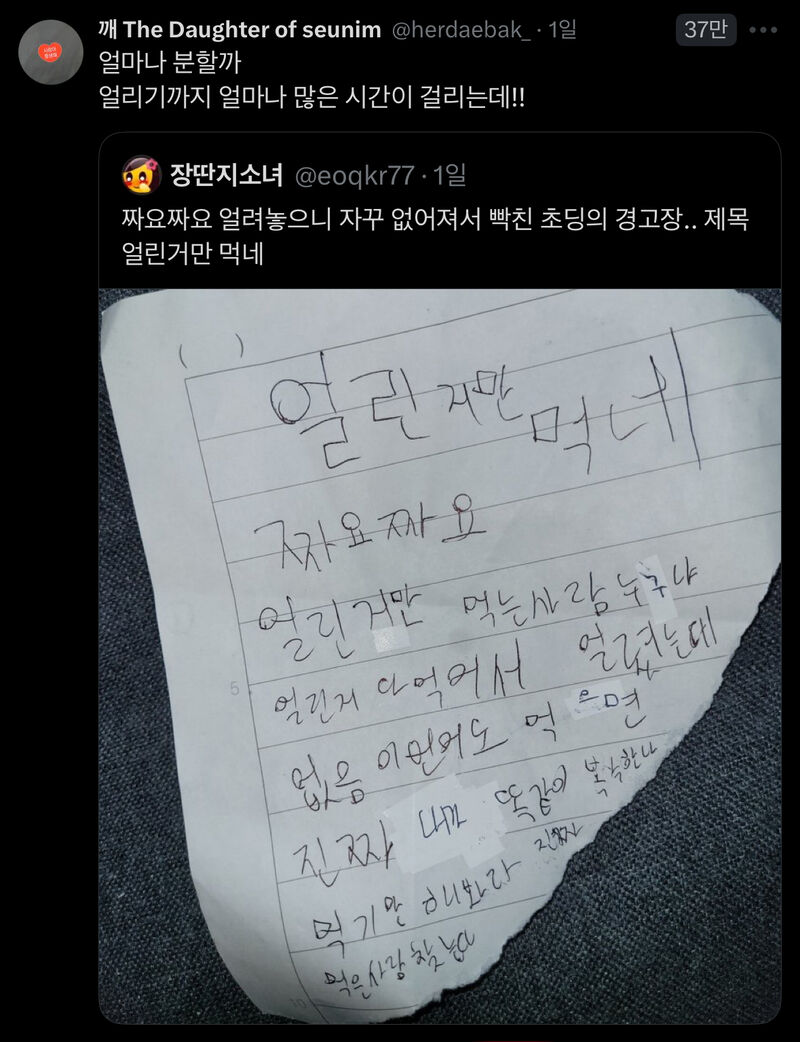 깨 The Daughter of seunim @herdaebak_ · 1일
37만
얼마나 분할까
얼리기까지 얼마나 많은 시간이 걸리는데!!
장딴지소녀 @eoqkr77 · 1일
짜요짜요 얼려놓으니 자꾸 없어져서 빡친 초딩의 경고장.. 제목
얼린거만 먹네
( )
얼린거만 먹네
짜요짜요
얼린거만 먹는사람 누구냐
5
얼린거 다먹어서 얼렸는데
없음 이번에도 먹으면
진짜 내가 똑같이 복수한다
먹기만 해봐라 진짜
먹은사람 찾는다
10